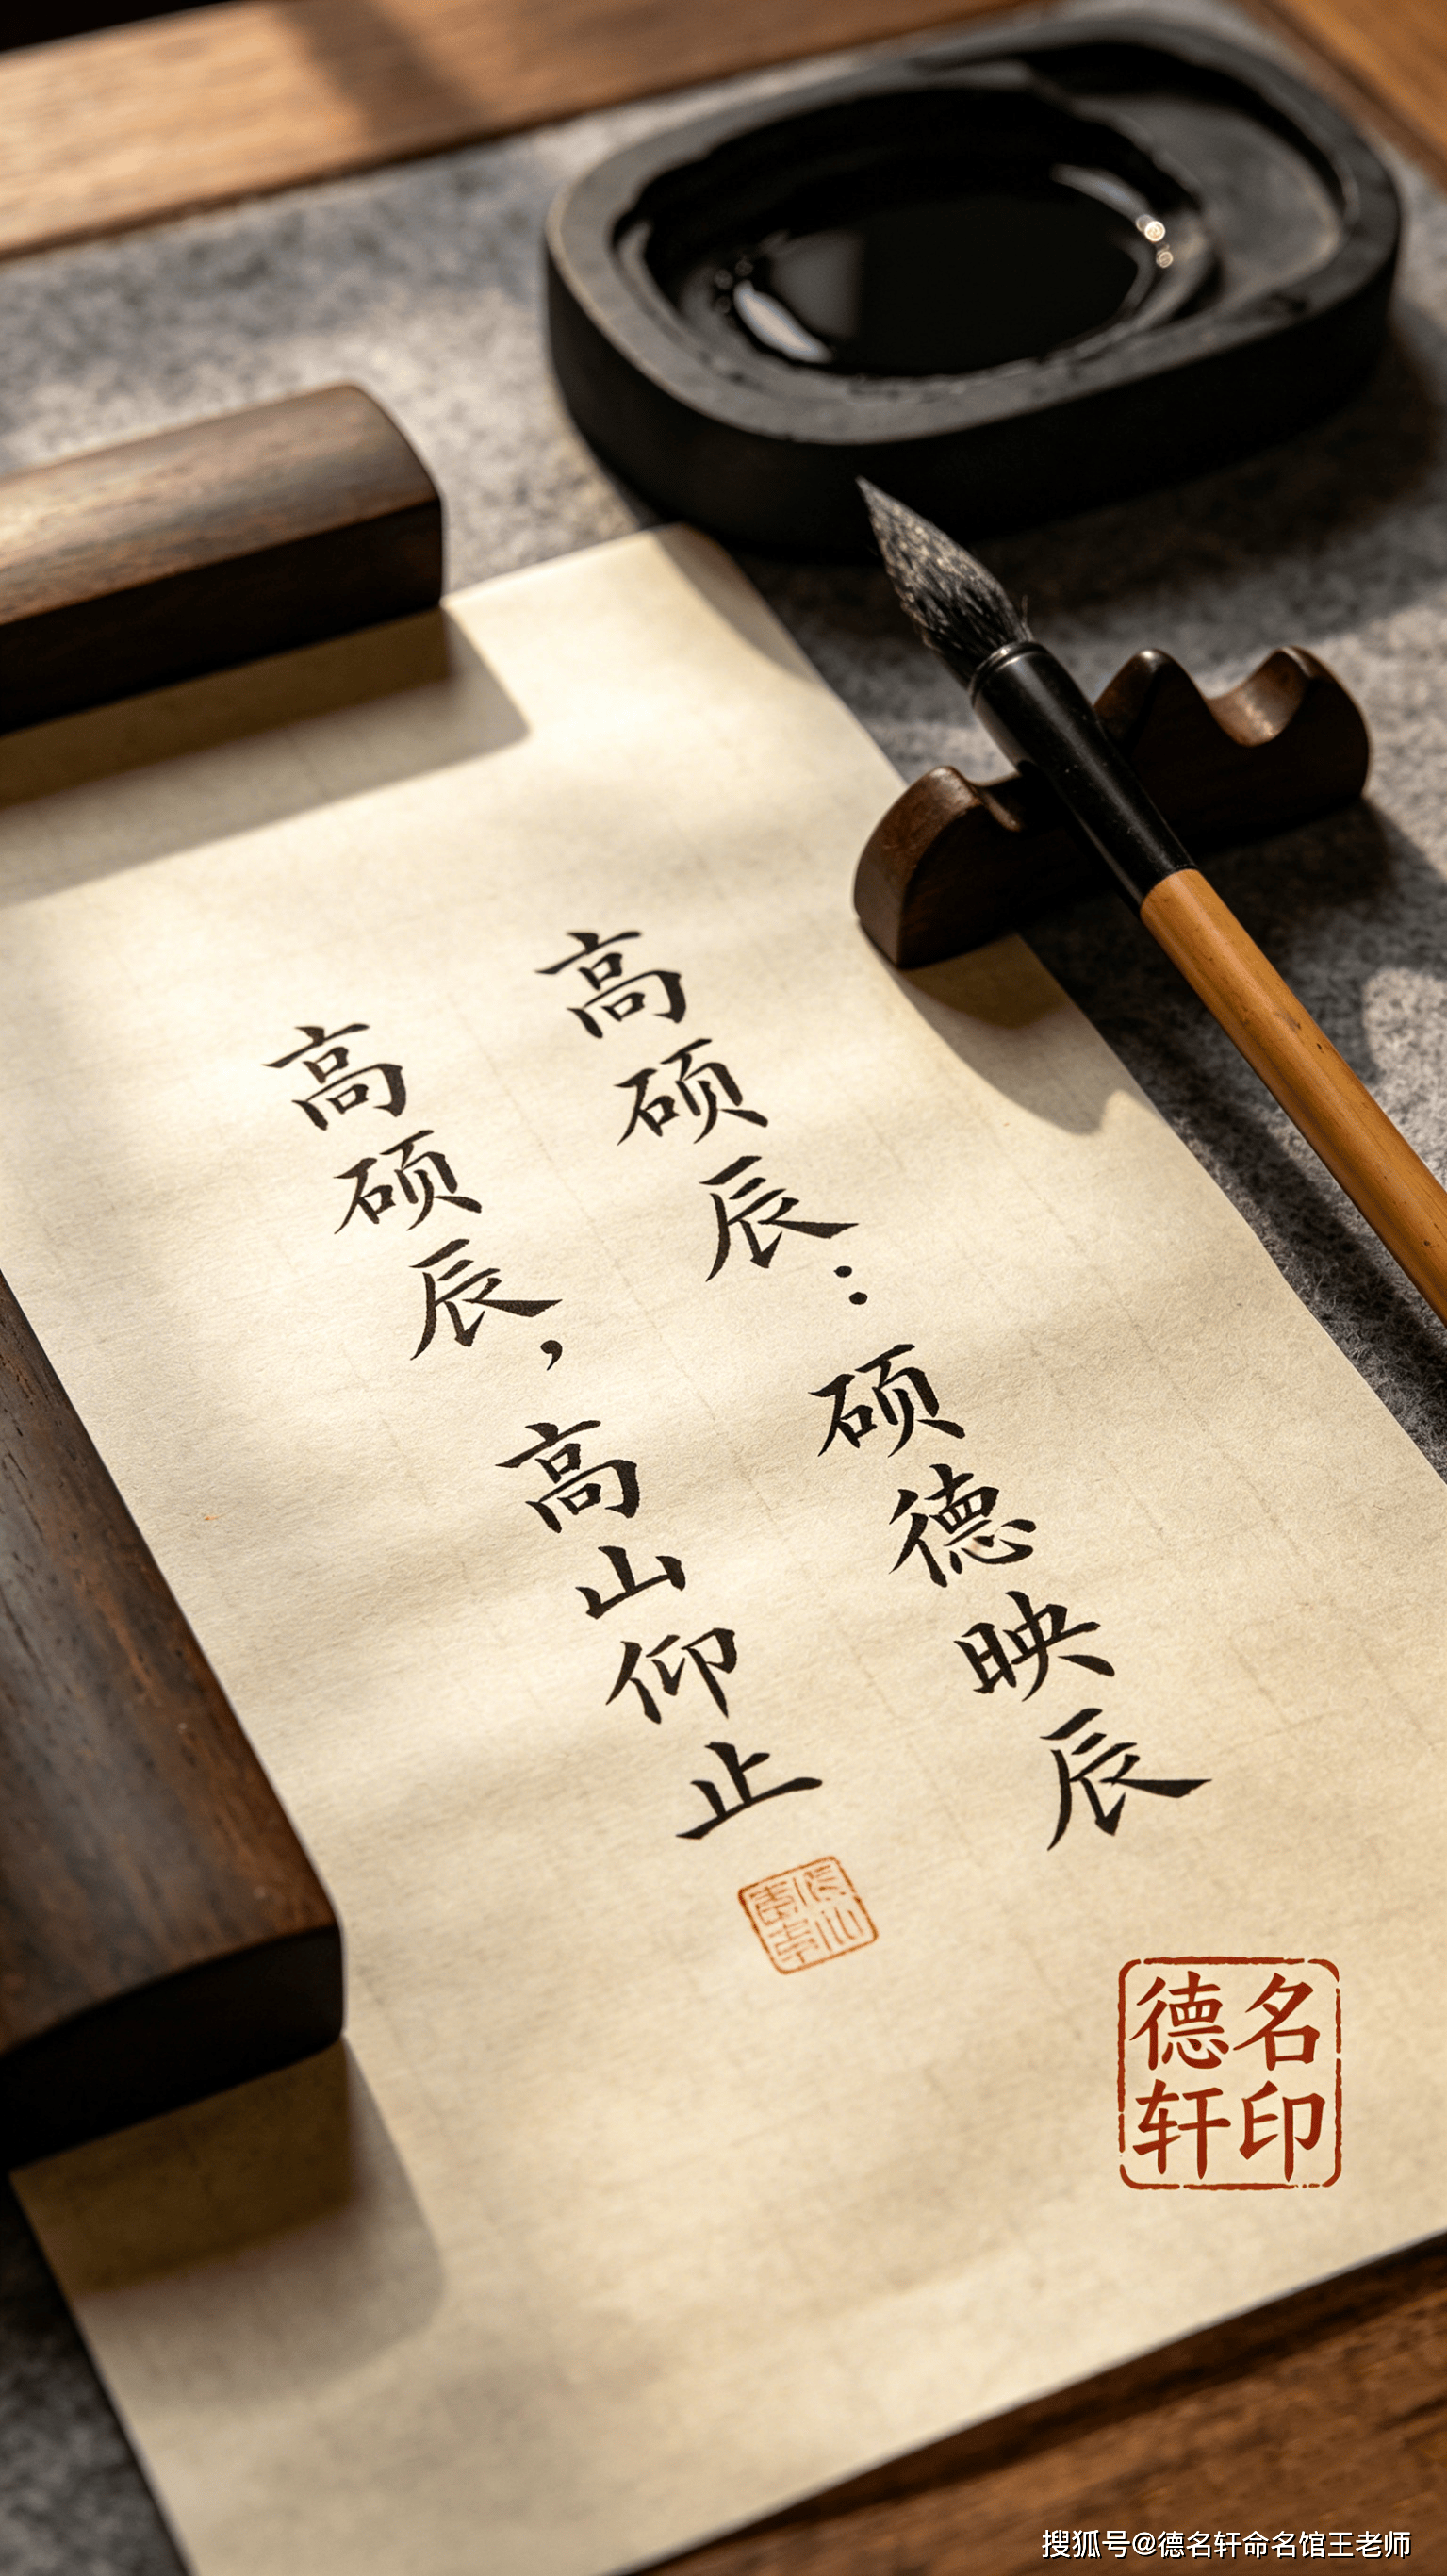 高硕辰：硕德映辰
高硕辰，高山仰止
德名
轩印
搜狐号@德名轩命名馆王老师